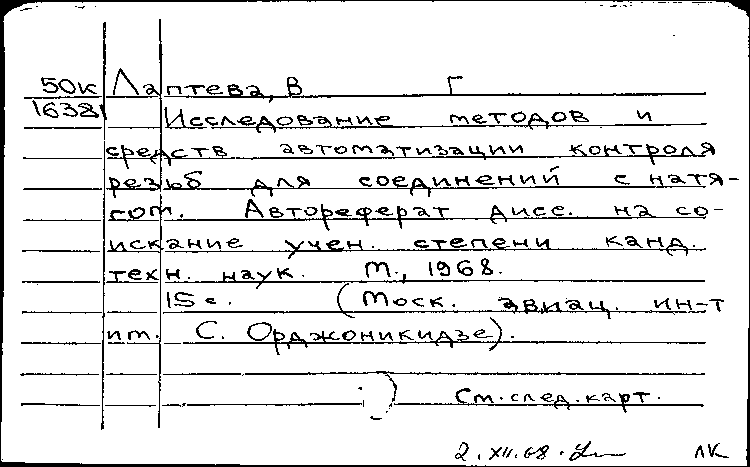 50к Лаптева, В Г
16381 Исследование методов и
средств автоматизации контроля
резьб для соединений с натя-
гом. Автореферат дисс. на со-
искание учен. степени канд.
техн. наук. М., 1968.
15 с. (Моск. авиац. ин-т
им. С. Орджоникидзе).
См. след. карт.
2.XII.68. ЛК